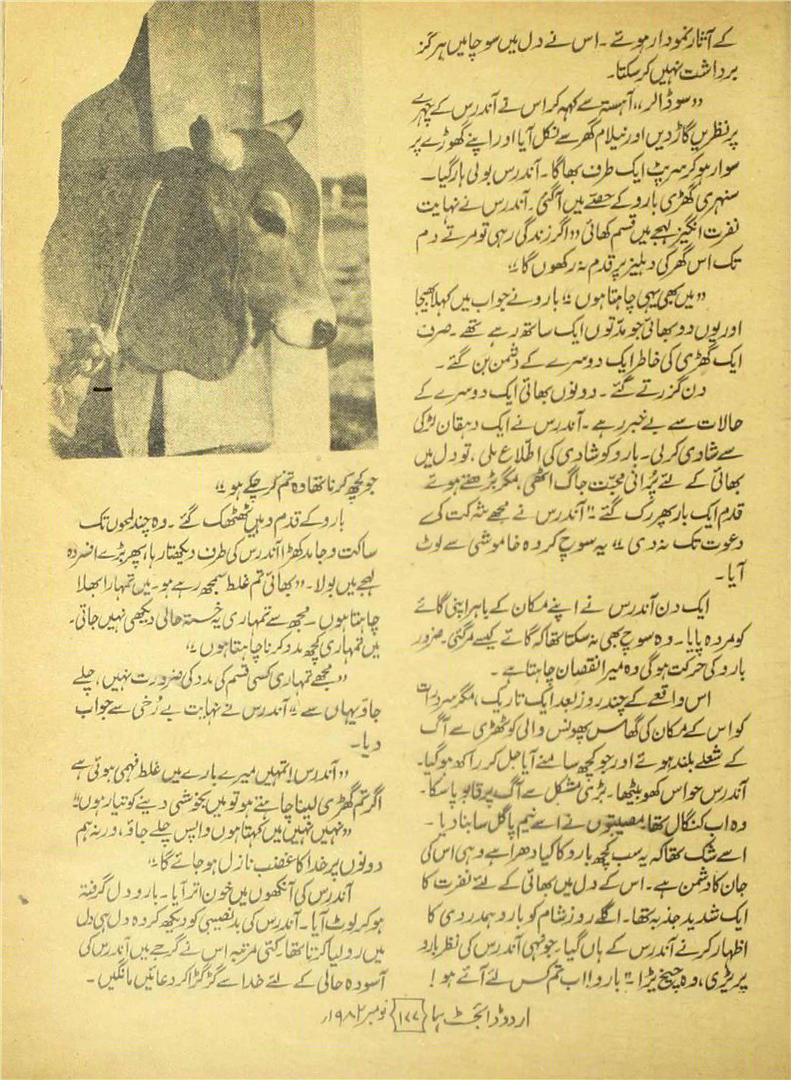 کے آثار نمودار ہوتے ۔ اس نے دل میں سوچا میں ہرگز
برداشت نہیں کر سکتا ۔
”سو ڈالر،، آہستہ سے کہہ کر اس نے آندرس کے چہرے
پر نظریں گاڑ دیں اور نیلام گھر سے نکل آیا اور اپنے گھوڑے پر
سوار ہو کر سرپٹ ایک طرف بھاگا ۔ آندرس بولی ہار گیا ۔
سنہری گھڑی بارو کے حصّے میں آگئی ۔ آندرس نے نہایت
نفرت انگیز لہجے میں قسم کھائی ”اگر زندگی رہی تو مرتے دم
تک اس گھر کی دہلیز پر قدم نہ رکھوں گا“
”میں بھی یہی چاہتا ہوں“ بارو نے جواب میں کہلا بھیجا
اور یوں دو بھائی جو مدّتوں ایک ساتھ رہے تھے ۔ صرف
ایک گھڑی کی خاطر ایک دوسرے کے دشمن بن گئے ۔
دن گزرتے گئے ۔ دونوں بھائی ایک دوسرے کے
حالات سے بے خبر رہے ۔ آندرس نے ایک دہقان لڑکی
سے شادی کر لی ۔ بارو کو شادی کی اطّلاع ملی، تو دل میں
بھائی کے لئے پُرانی محبّت جاگ اٹھی، مگر بڑھتے ہوئے
قدم ایک بار پھر رک گئے ”آندرس نے مجھے شرکت کی
دعوت تک نہ دی“ یہ سوچ کر وہ خاموشی سے لوٹ
آیا ۔
ایک دن آندرس نے اپنے مکان کے باہر اپنی گائے
کو مردہ پایا ۔ وہ سوچ بھی نہ سکتا تھا کہ گائے کیسے مر گئی ۔ ضرور
بارو کی حرکت ہوگی وہ میرا نقصان چاہتا ہے ۔
اس واقعے کے چند روز بعد ایک تاریک، مگر سرد رات
کو اس کے مکان کی گھاس پھونس والی کوٹھڑی سے آگ
کے شعلے بلند ہوئے اور جو کچھ سامنے آیا جل کر راکھ ہو گیا ۔
آندرس حواس کھو بیٹھا ۔ بڑی مشکل سے آگ پر قابو پا سکا ۔
وہ اب کنگال تھا ۔ مصیبتوں نے اسے نیم پاگل سا بنا دیا ۔
اسے شک تھا کہ یہ سب کچھ بارو کا کیا دھرا ہے وہی اس کی
جان کا دشمن ہے ۔ اس کے دل میں بھائی کے لئے نفرت کا
ایک شدید جذبہ تھا ۔ اگلے روز شام کو بارو ہمدردی کا
اظہار کرنے آندرس کے ہاں گیا ۔ جونہی آندرس کی نظر بارو
پر پڑی، وہ چیخ پڑا ۔ ”بارو! اب تم کس لئے آئے ہو !
جو کچھ کرنا تھا وہ تم کر چکے ہو“
بارو کے قدم وہیں ٹھٹھک گئے ۔ وہ چند لمحوں تک
ساکت و جامد کھڑا آندرس کی طرف دیکھتا رہا، پھر بڑے افسردہ
لہجے میں بولا ۔ ”بھائی تم غلط سمجھ رہے ہو ۔ میں تمہارا بھلا
چاہتا ہوں ۔ مجھ سے تمہاری یہ خستہ حالی دیکھی نہیں جاتی ۔
میں تمہاری کچھ مدد کرنا چاہتا ہوں“
”مجھے تمہاری کسی قسم کی مدد کی ضرورت نہیں، چلے
جاؤ یہاں سے“ آندرس نے نہایت بے رُخی سے جواب
دیا ۔
”آندرس! تمہیں میرے بارے میں غلط فہمی ہوئی ہے
اگر تم گھڑی لینا چاہتے ہو تو میں بخوشی دینے کو تیار ہوں“
”نہیں نہیں میں کہتا ہوں واپس چلے جاؤ، ورنہ ہم
دونوں پر خدا کا غضب نازل ہو جائے گا“
آندرس کی آنکھوں میں خون اتر آیا ۔ بارو دل گرفتہ
ہو کر لوٹ آیا ۔ آندرس کی بد نصیبی کو دیکھ کر وہ دل ہی دل
میں رو لیا کرتا تھا ۔ کئی مرتبہ اس نے گرجے میں آندرس کی
آسودہ حالی کے لئے خدا سے گڑگڑا کر دعائیں مانگیں ۔
اردو ڈائجسٹ ہما {۱۷۷} نومبر ۱۹۸۲ء